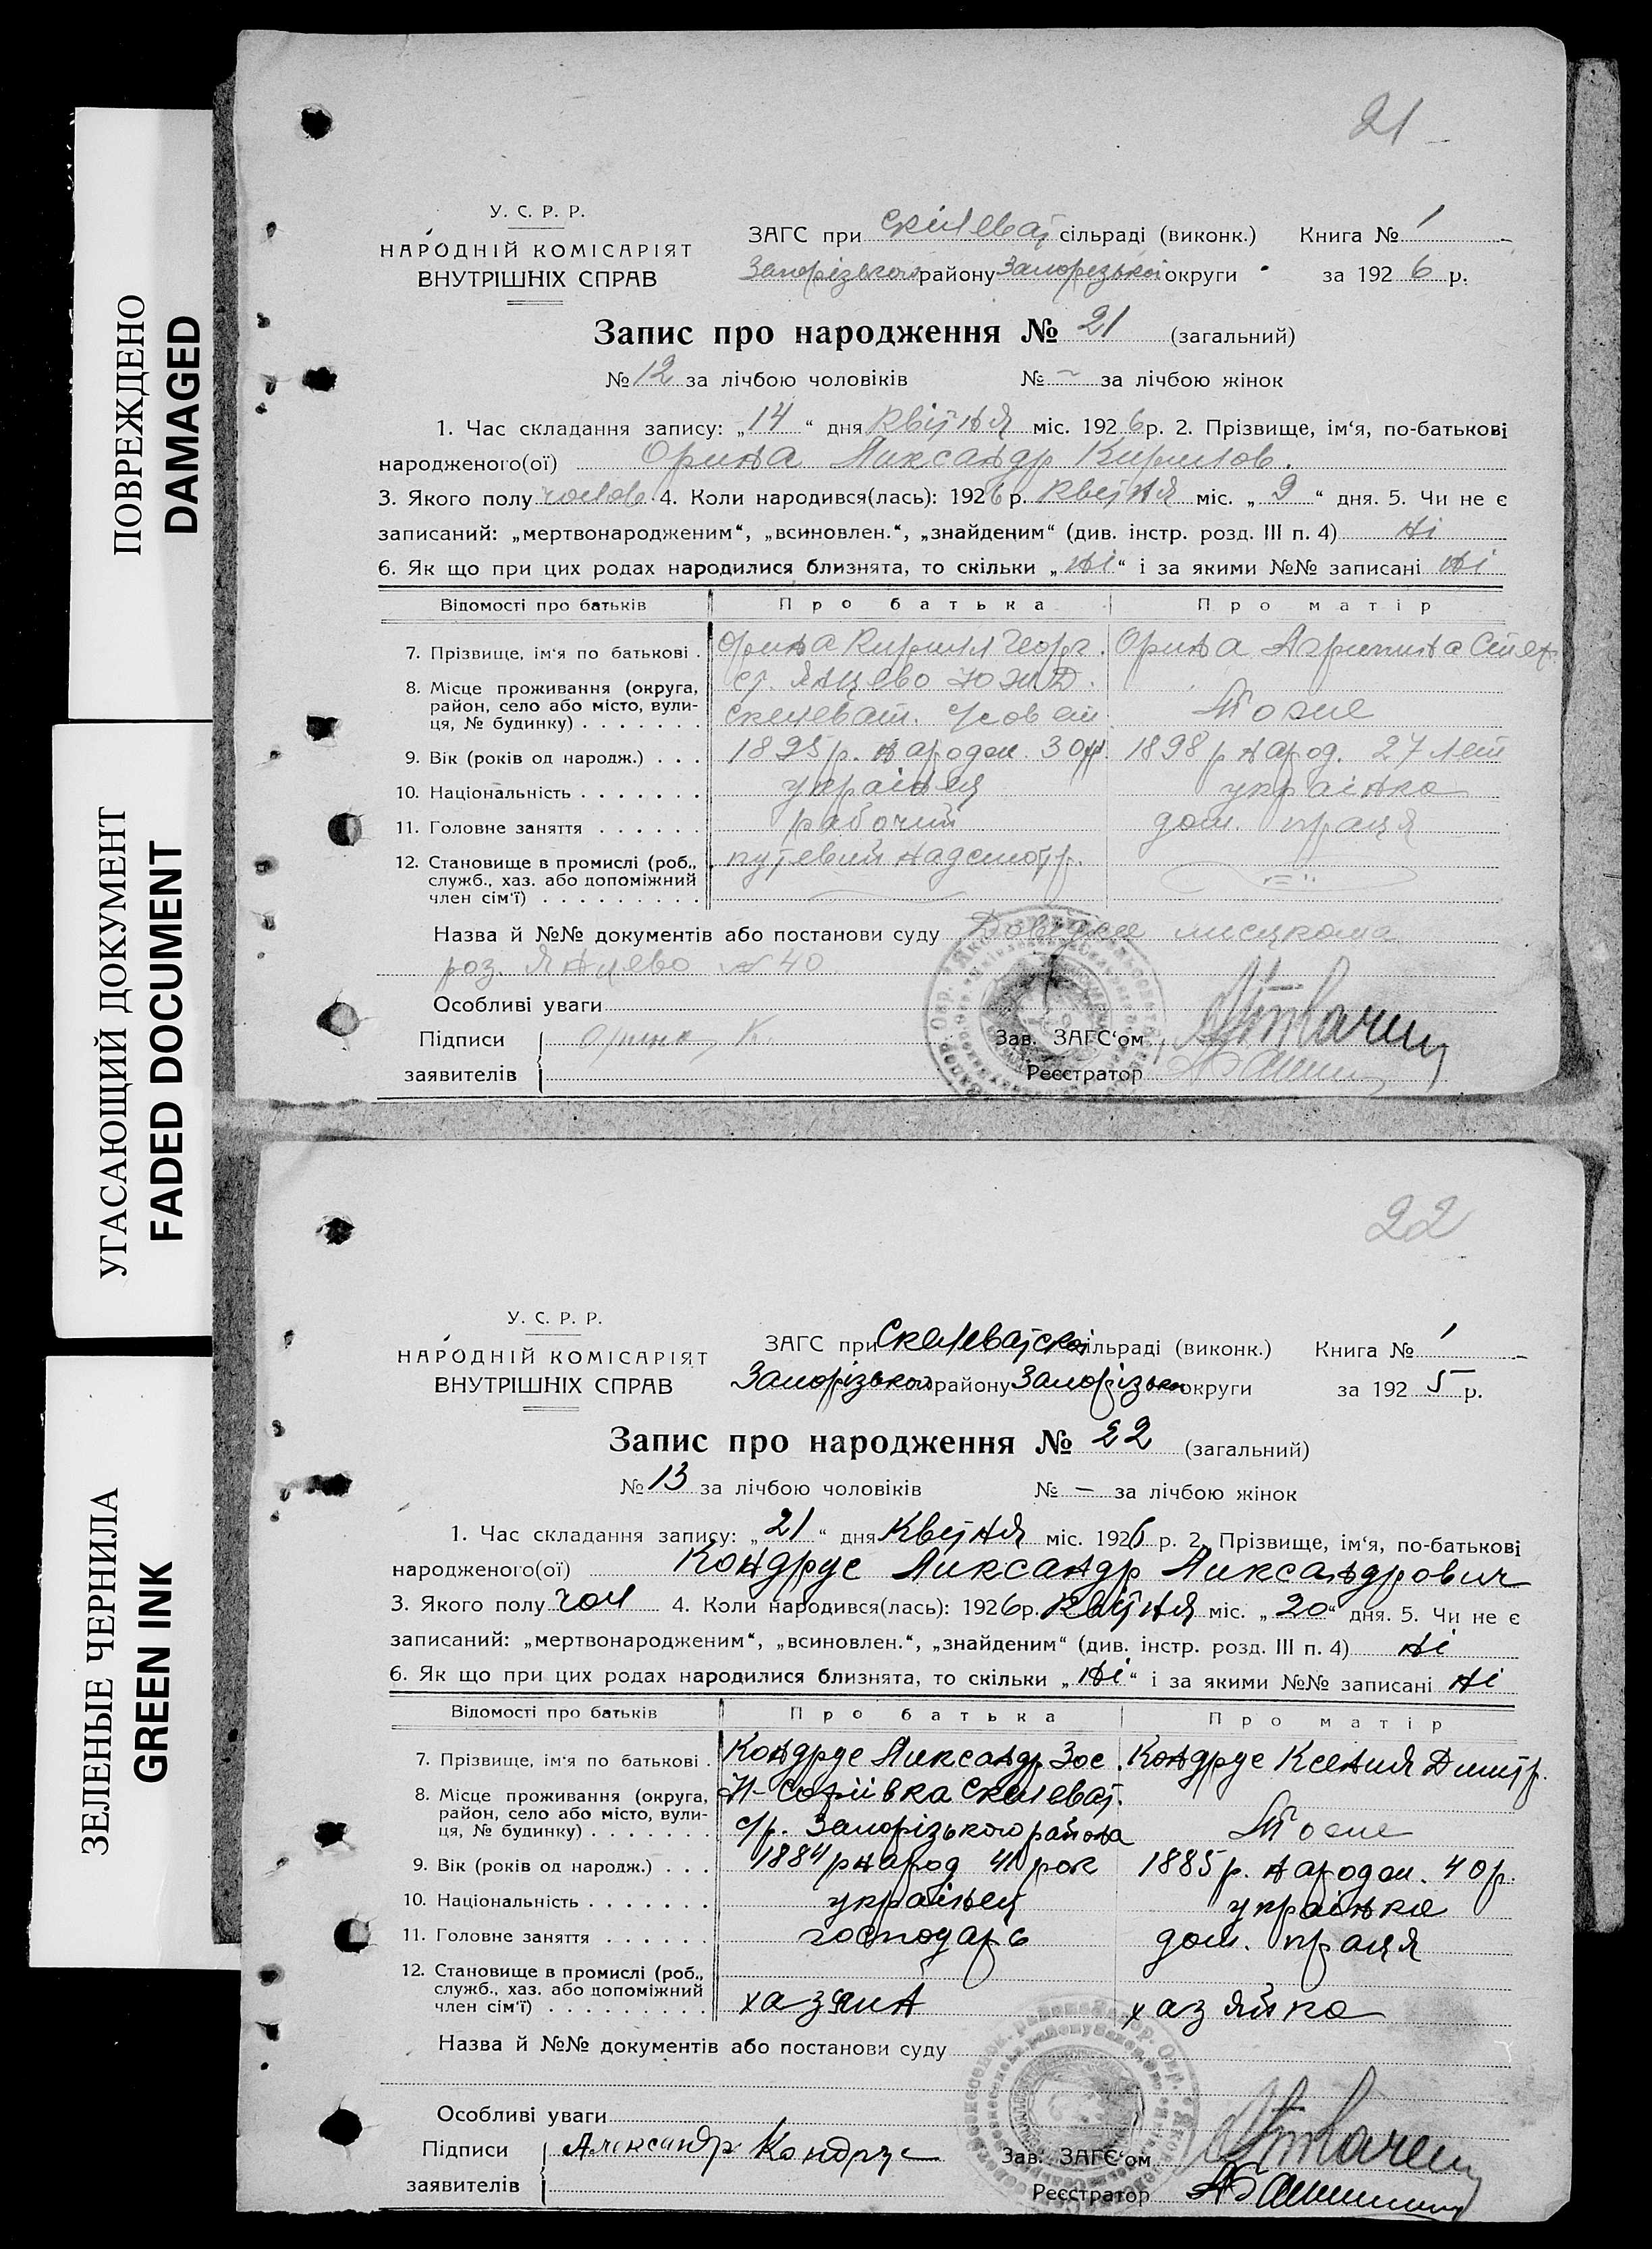 ПОВРЕЖДЕНО
DAMAGED
УГАСАЮЩИЙ ДОКУМЕНТ
FADED DOCUMENT
ЗЕЛЕНЫЕ ЧЕРНИЛА
GREEN INK
21
У. С. Р. Р.
НАРОДНІЙ КОМІСАРІЯТ
ВНУТРІШНІХ СПРАВ
ЗАГС при Скілеват сільраді (виконк.) Книга № 1
Запорізького району Запорезької округи за 1926 р.
Запис про народження № 21 (загальний)
№ 12 за лічбою чоловіків № – за лічбою жінок
1. Час складання запису: „14“ дня квітня міс. 1926 р. 2. Прізвище, ім‘я, по-батькові
народженого(ої) Орина Ликсандр Кирилов.
3. Якого полу чолов 4. Коли народився(лась): 1926 р. квітня міс. „9“ дня. 5. Чи не є
записаний: „мертвонародженим“, „всиновлен.“, „знайденим“ (див. інстр. розд. III п. 4) ні
6. Як що при цих родах народилися близнята, то скільки „ні“ і за якими №№ записані ні
Відомості про батьків Про батька Про матір
7. Прізвище, ім‘я по батькові . Орина Кирилл Георг. Орина Агрипина Степ
8. Місце проживання (округа, ст. Янцево Юж Д.
район, село або місто, вули- Скелеват. Тоже
ця, № будинку)
9. Вік (років од народж.) 1895 р. народж. 30 р. 1898 р народ. 27 лет
10. Національність українец українка
11. Головне заняття рабочий дом. праця
12. Становище в промислі (роб., путевий надсмотр.
служб., хаз. або допоміжний
член сім‘ї)
Назва й №№ документів або постанови суду Довідка месцкома
роз. Янцево № 40
Особливі уваги
Підписи Орина К.
заявителів
Зав. ЗАГС‘ом
Реєстратор
22
У. С. Р. Р.
НАРОДНІЙ КОМІСАРІЯТ
ВНУТРІШНІХ СПРАВ
ЗАГС при Скелеватській сільраді (виконк.) Книга № 1
Запорізького району Запорізької округи за 1925 р.
Запис про народження № 22 (загальний)
№ 13 за лічбою чоловіків № – за лічбою жінок
1. Час складання запису: „21“ дня Квітня міс. 1926 р. 2. Прізвище, ім‘я, по-батькові
народженого(ої) Кондрус Ликсандр Ликсандрович
3. Якого полу чол 4. Коли народився(лась): 1926 р. Квітня міс. „20“ дня. 5. Чи не є
записаний: „мертвонародженим“, „всиновлен.“, „знайденим“ (див. інстр. розд. III п. 4) ні
6. Як що при цих родах народилися близнята, то скільки „ні“ і за якими №№ записані ні
Відомості про батьків Про батька Про матір
7. Прізвище, ім‘я по батькові . Кондрус Ликсандр Зос. Кондрус Ксения Дмитр.
8. Місце проживання (округа, Н-Софіівка Скелеват.
район, село або місто, вули- с/р. Запорізького района Тоже
ця, № будинку)
9. Вік (років од народж.) 1884 р народ 41 рок 1885 р. народж. 40 р.
10. Національність українец українка
11. Головне заняття господарь дом. праця
12. Становище в промислі (роб.,
служб., хаз. або допоміжний хазяин хазяйка
член сім‘ї)
Назва й №№ документів або постанови суду
Особливі уваги
Підписи Александр Кондрус
заявителів
Зав. ЗАГС‘ом
Реєстратор